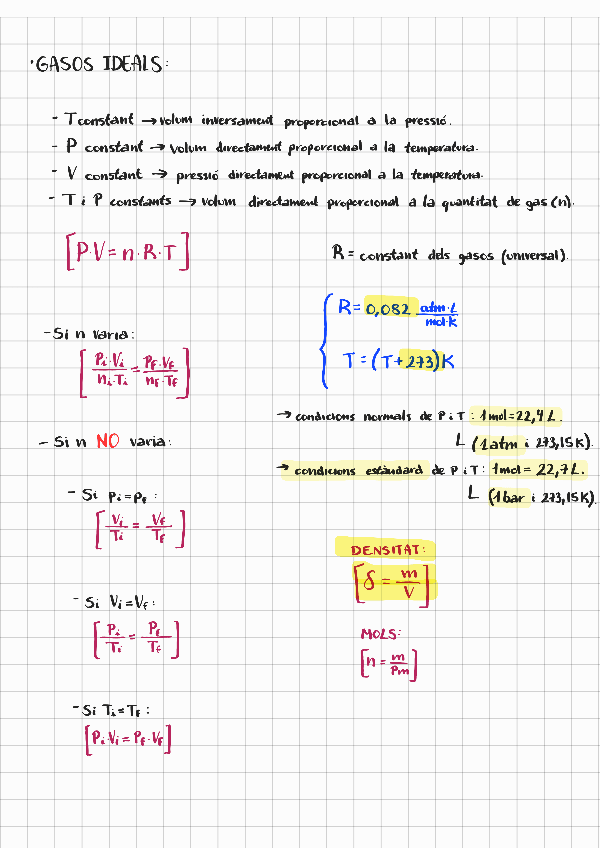 ·GASOS IDEALS:
- T constant → volum inversament proporcional a la pressió.
- P constant → volum directament proporcional a la temperatura.
- V constant → pressió directament proporcional a la temperatura.
- T i P constants → volum directament proporcional a la quantitat de gas (n).
[P·V = n·R·T]
R = constant dels gasos (universal).
R = 0,082 atm·L/mol·K
T = (T + 273) K
- Si n varia:
[Pi·Vi/ni·Ti = Pf·Vf/nf·Tf]
→ condicions normals de P i T: 1mol = 22,4 L.
L (1atm i 273,15K).
→ condicions estàndard de P i T: 1mol = 22,7 L.
L (1bar i 273,15K).
- Si n NO varia:
- Si Pi = Pf:
[Vi/Ti = Vf/Tf]
- Si Vi = Vf:
[Pi/Ti = Pf/Tf]
- Si Ti = Tf:
[Pi·Vi = Pf·Vf]
DENSITAT:
[δ = m/V]
MOLS:
[n = m/Pm]